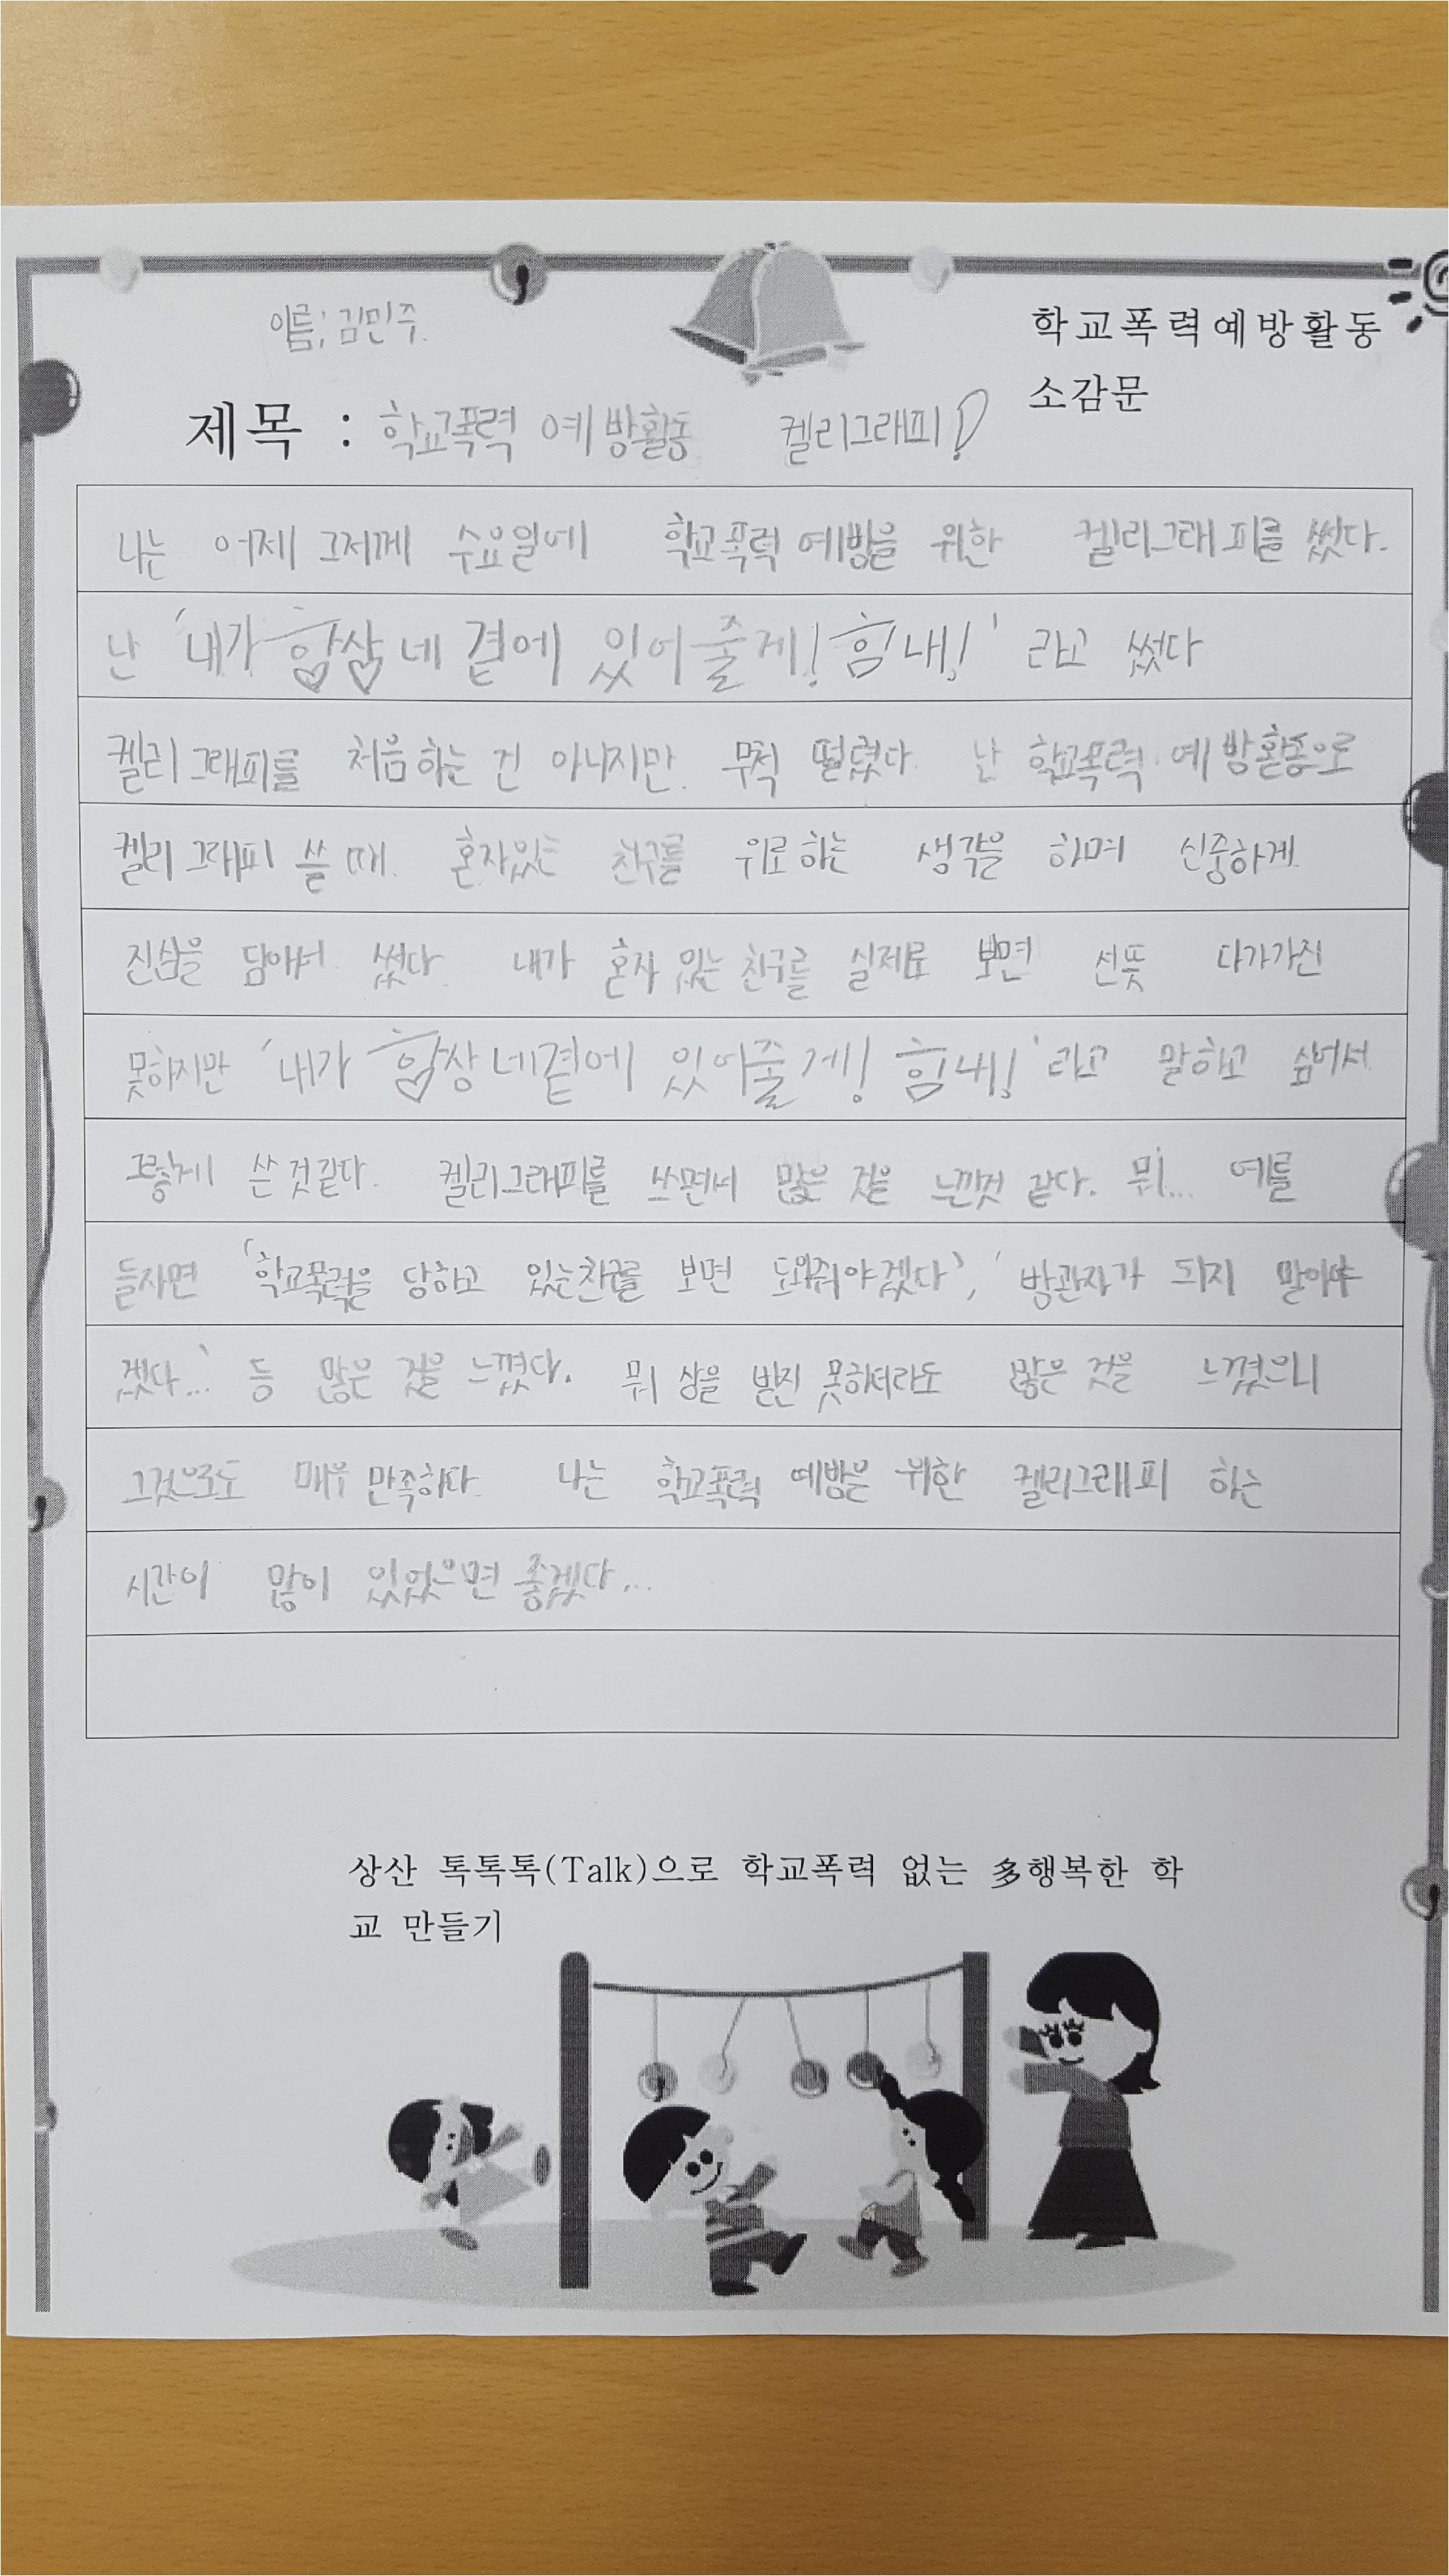 이름; 김민주.
학교폭력예방활동
소감문
제목 : 학교폭력 예방활동 켈리그래피!
나는 어제 그저께 수요일에 학교폭력 예방을 위한 켈리그래피를 썼다.
난 '내가 항상 네 곁에 있어줄게! 힘내!' 라고 썼다
켈리그래피를 처음하는 건 아니지만. 무척 떨렸다. 난 학교폭력 예방활동으로
켈리그래피 쓸 때. 혼자있는 친구를 위로하는 생각을 하며 신중하게.
진심을 담아서 썼다. 내가 혼자 있는 친구를 실제로 보면 선뜻 다가가진
못하지만 '내가 항상 네곁에 있어줄게! 힘내!' 라고 말하고 싶어서
그렇게 쓴 것같다. 켈리그래피를 쓰면서 많은 것을 느낀것 같다. 뭐... 예를
들자면 '학교폭력을 당하고 있는친구를 보면 도와줘야겠다', '방관자가 되지 말아야
겠다...' 등 많은 것을 느꼈다. 뭐 상을 받진 못하더라도 많은 것을 느꼈으니
그것으로도 매우 만족하다. 나는 학교폭력 예방을 위한 켈리그래피 하는
시간이 많이 있었으면 좋겠다...
상산 톡톡톡(Talk)으로 학교폭력 없는 多행복한 학
교 만들기